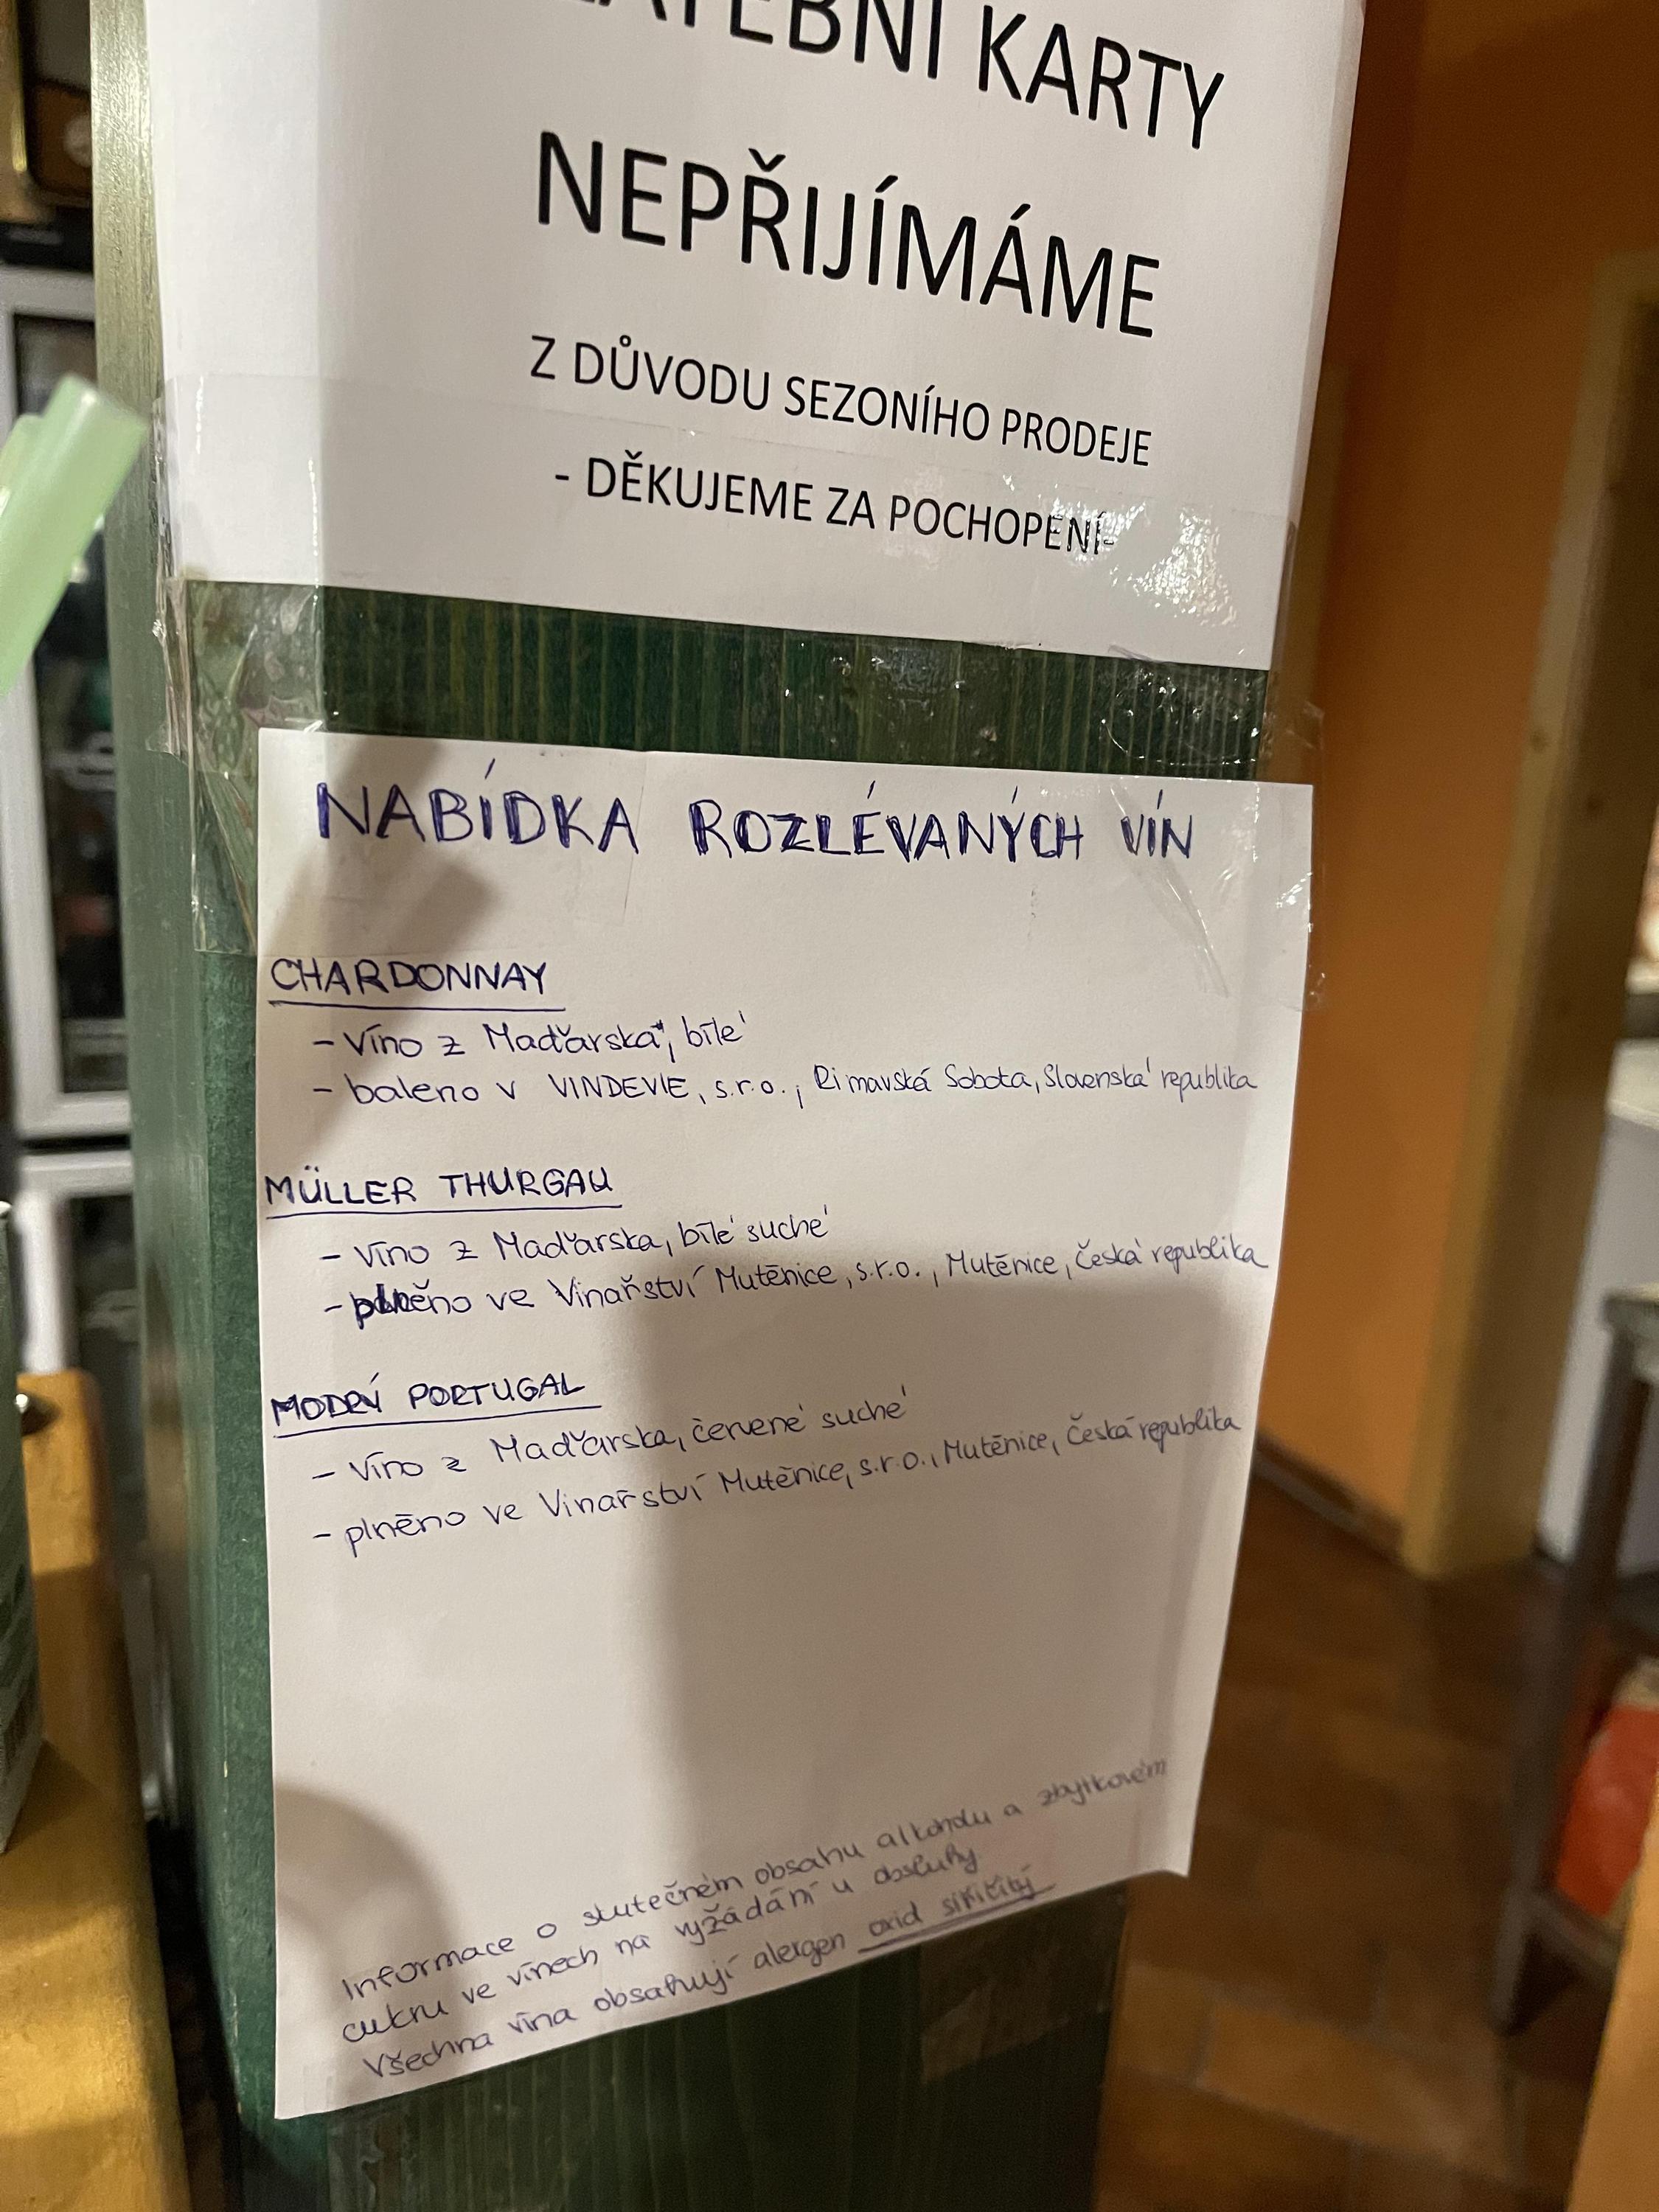 KARTY
NEPŘIJÍMÁME
Z DŮVODU SEZONÍHO PRODEJE
- DĚKUJEME ZA POCHOPENÍ-
NABÍDKA ROZLÉVANÝCH VÍN
CHARDONNAY
- Víno z Maďarska, bílé
- baleno v VINDEVIE, s.r.o., Rimavská Sobota, Slovenská republika
MÜLLER THURGAU
- Víno z Maďarska, bílé suché
- plněno ve Vinařství Mutěnice, s.r.o., Mutěnice, Česká republika
MODRÝ PORTUGAL
- Víno z Maďarska, červené suché
- plněno ve Vinařství Mutěnice, s.r.o., Mutěnice, Česká republika
Informace o skutečném obsahu alkoholu a zbytkovém
cukru ve vínech na vyžádání u obsluhy.
Všechna vína obsahují alergen oxid siřičitý